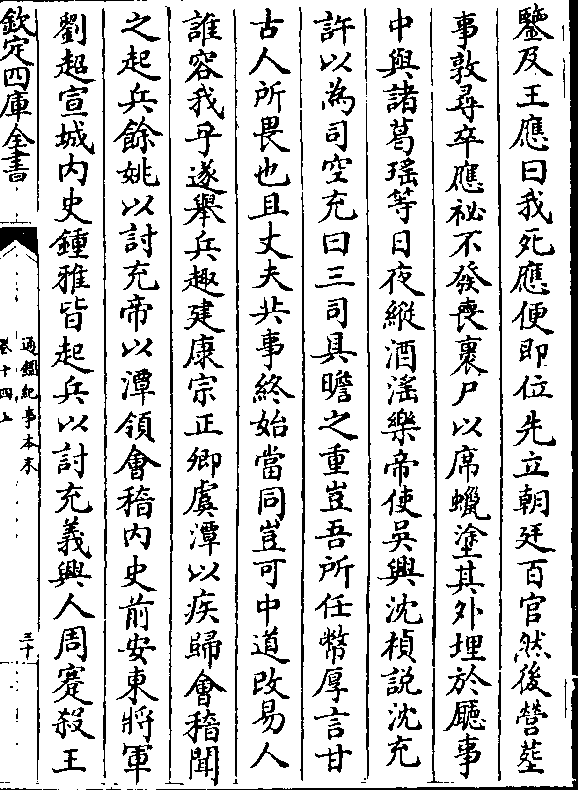 鑒及王應曰我死應便即位先立朝廷百官然後營塟
事敦尋卒應祕不發喪裹尸以席蠟塗其外埋於廳事
中與諸葛瑶等日夜縱酒滛樂帝使吳興沈楨説沈充
許以為司空充曰三司具瞻之重豈吾所任幣厚言甘
古人所畏也且丈夫共事終始當同豈可中道改易人
誰容我乎遂舉兵趣建康宗正卿虞潭以疾歸會稽聞
之起兵餘姚以討充帝以潭領會稽内史前安東將軍
劉超宣城内史鍾雅皆起兵以討充義興人周蹇殺王
欽定四庫全書
通鑑紀事本末
卷十四上
三十